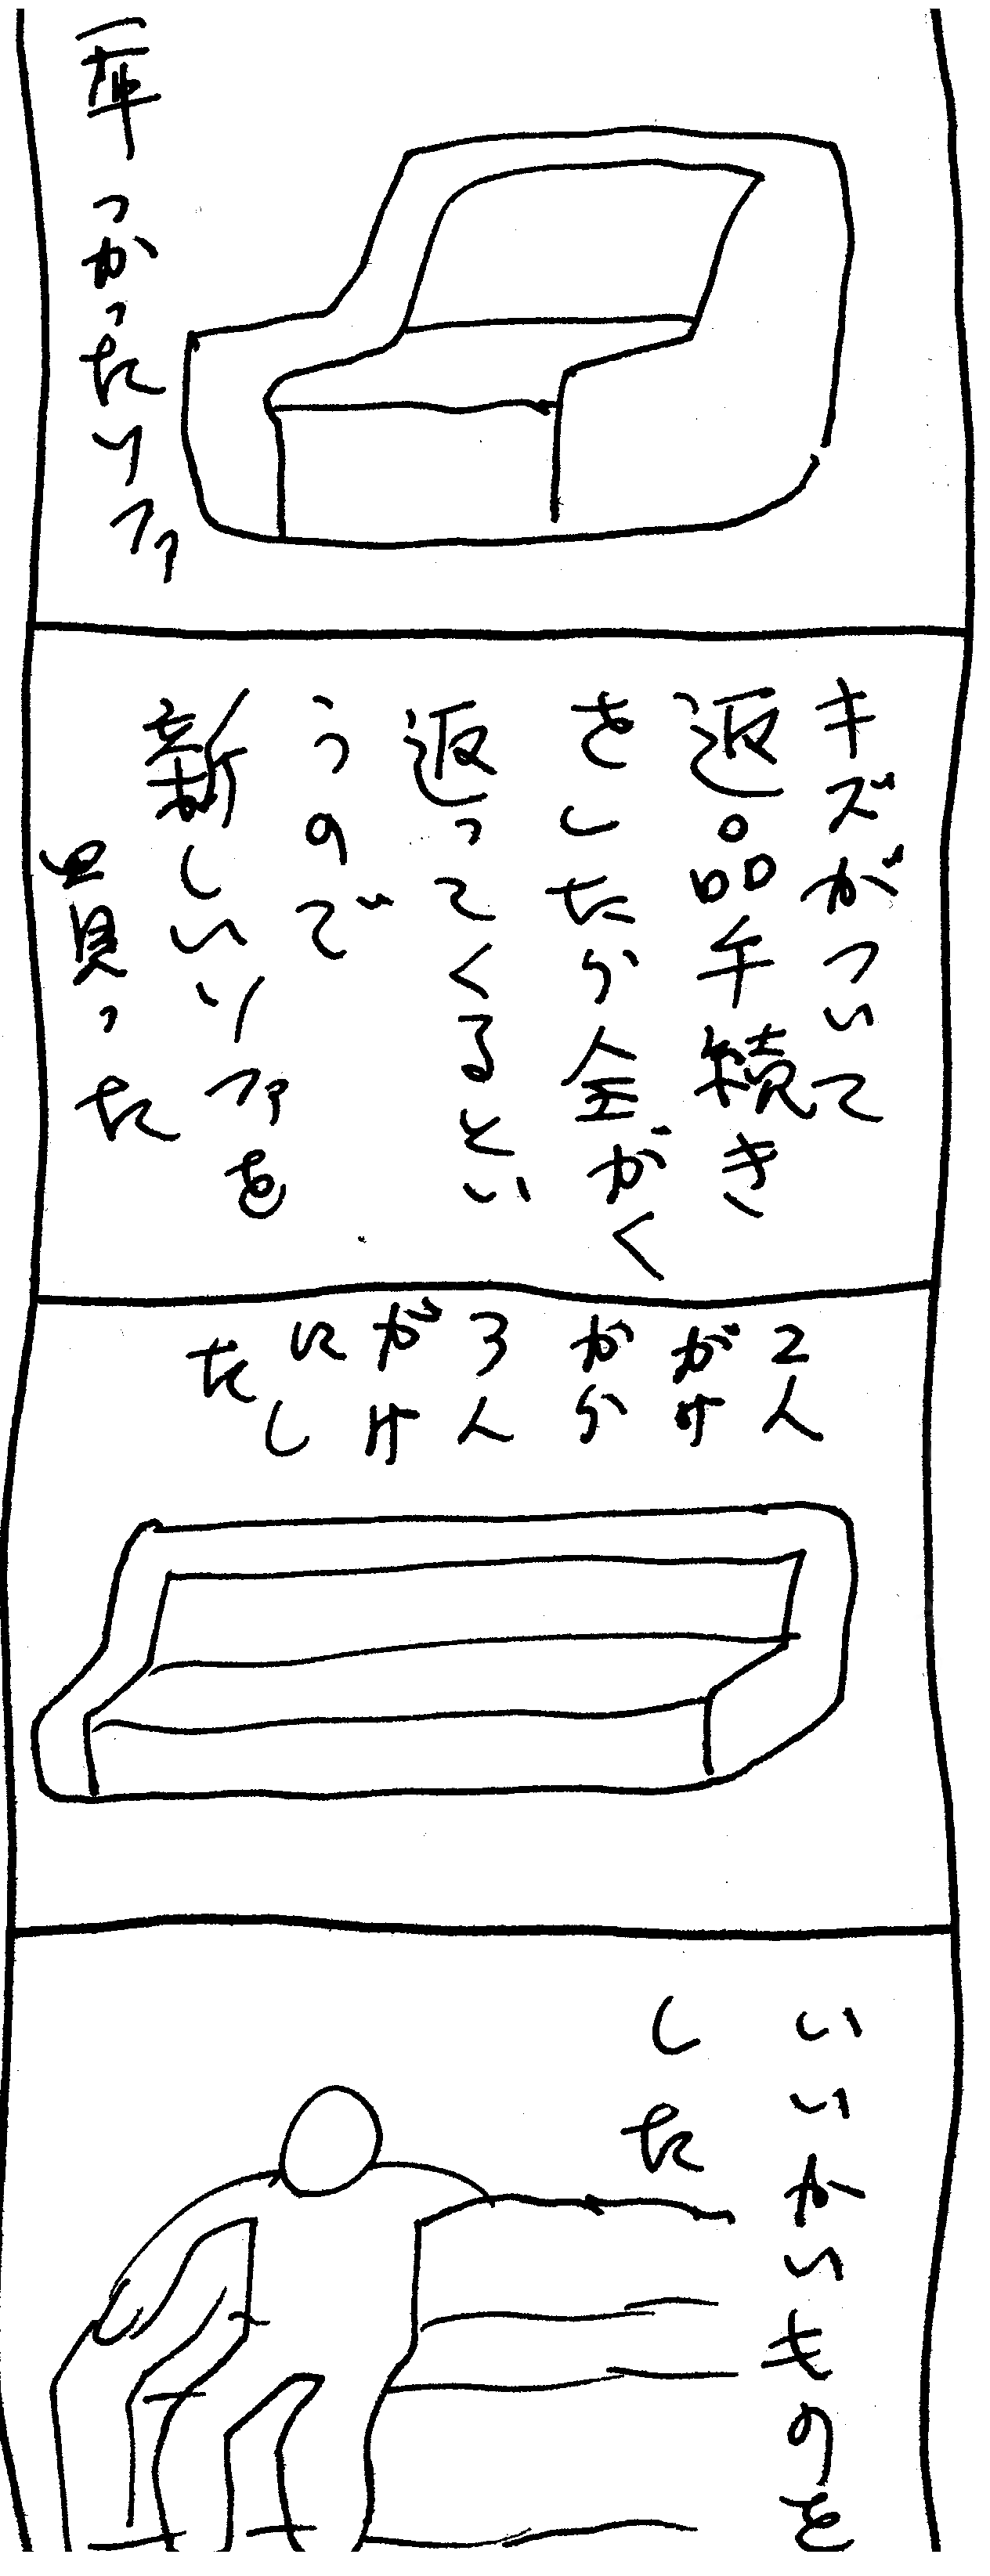 つかったソファ
キズがついて
返品手続き
をしたら全がく
返ってくるとい
うので
新しいソファを
買った
2人
がけ
から
3人
がけ
にし
た
いいかいものを
した